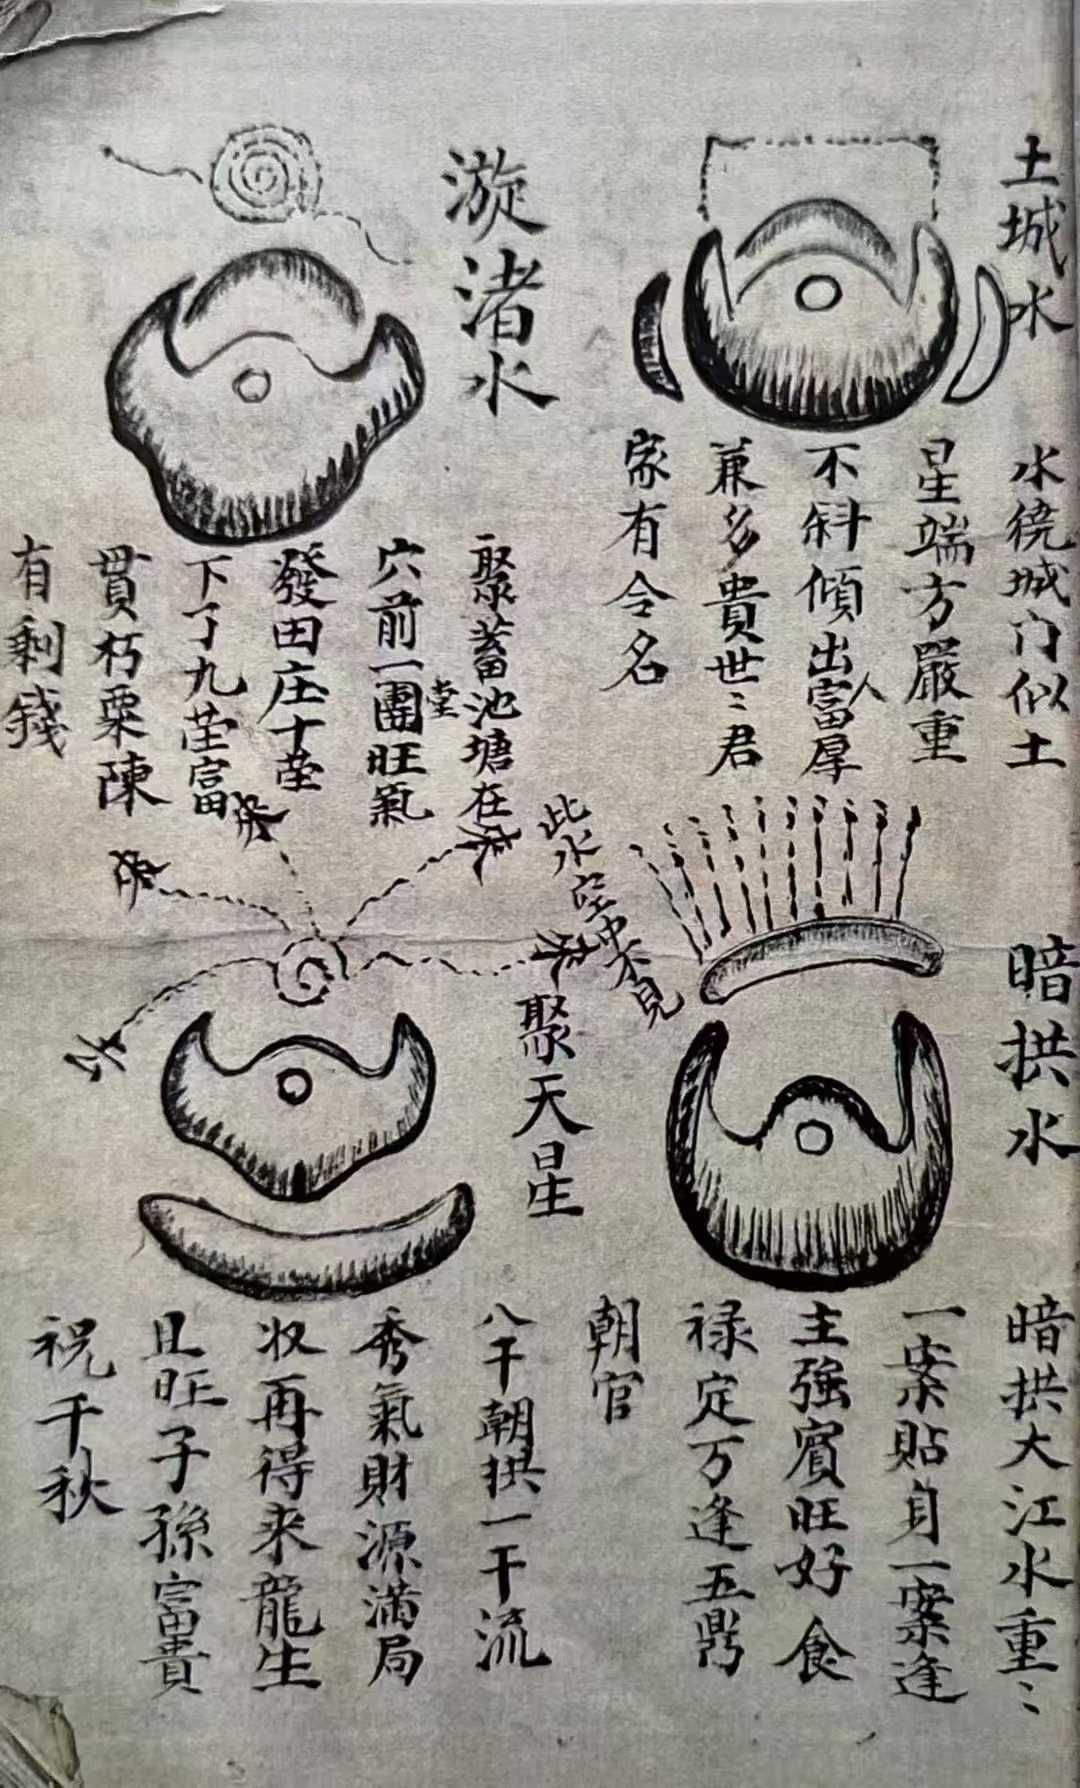 土城水
水绕城门似土
星端方嚴重
不斜傾出富厚
人
兼多貴世〻君
家有令名
漩渚水
聚蓄池塘在
堂
穴前一團旺氣
發田庄十茔
下了九茔富
貫朽粟陳
有剩錢
暗拱水
暗拱大江水重〻
一案貼身一案逢
主強賓旺好食
禄定万逢五鼎
朝官
此水空中不見
聚天星
八干朝拱一干流
秀氣財源满局
収再得来龍生
且旺子孫富貴
祝千秋